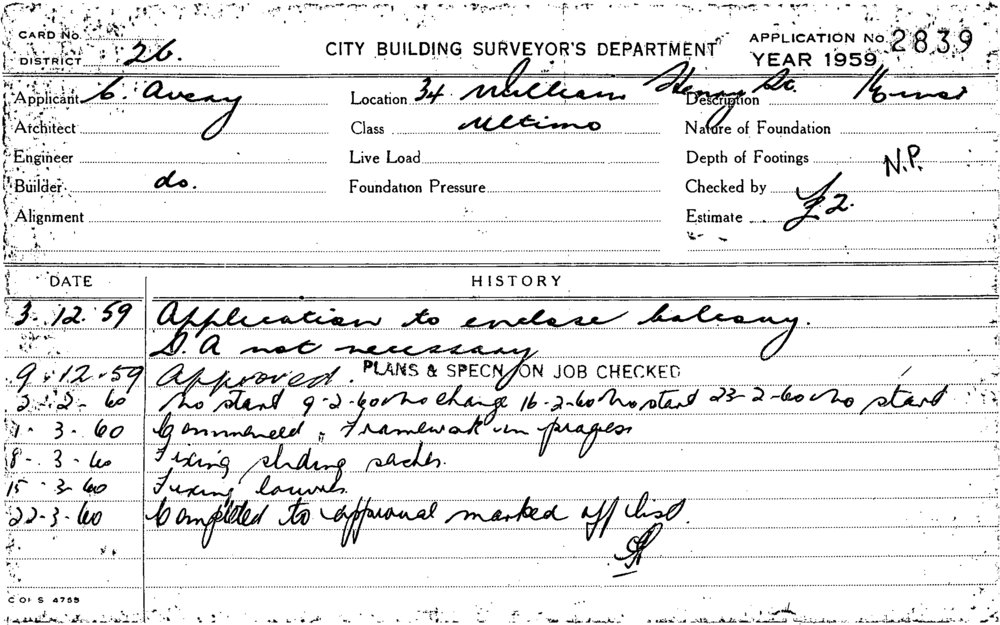 CARD No.
DISTRICT 26.
CITY BUILDING SURVEYOR'S DEPARTMENT
APPLICATION No. 2839
YEAR 1959
Applicant C. Avery Location 34 William Henry St. Description
Architect Class Ultimo Nature of Foundation
Engineer Live Load Depth of Footings N.P.
Builder do. Foundation Pressure Checked by
Alignment Estimate £2.
DATE HISTORY
3.12.59 Application to enclose balcony.
D.A not necessary
9.12.59 Approved. PLANS & SPECN ON JOB CHECKED
2-2-60 No start 9-2-60 No change 16-2-60 No start 23-2-60 No start
1-3-60 Commenced, Framework in progess
8-3-60 Fixing sliding sashes.
15-3-60 Fixing louvres.
22-3-60 Completed to approval marked off list.
C OF S 4759